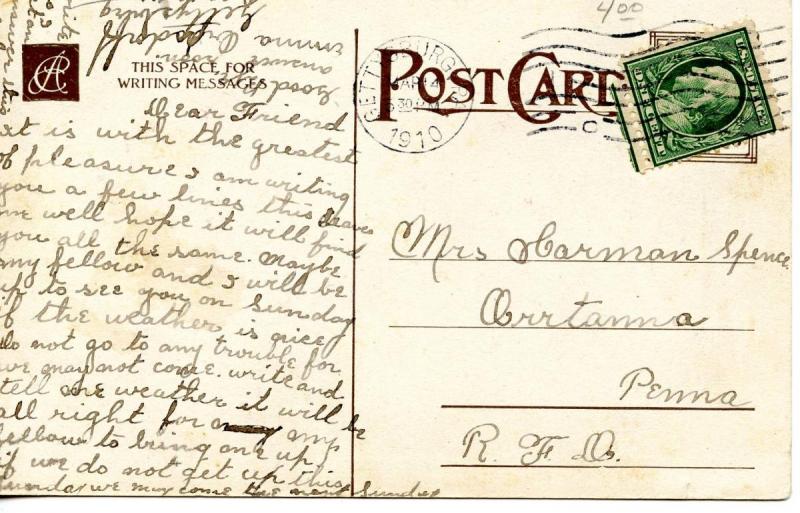 4 00
THIS SPACE FOR
WRITING MESSAGES
POST CARD
GETTYSBURG
1910
Dear Friend
it is with the greatest
of pleasure I am writing
you a few lines this leaves
me well hope it will find
you all the same. Maybe
my fellow and I will be
up to see you on Sunday
if the weather is nice
do not go to any trouble for
we may not come. write and
tell me weather it will be
all right for my
fellow to bring me up
if we do not get up this
Sunday we may come the next Sunday
Mrs Harman Spence
Orrtanna
Penna
R. F. D.